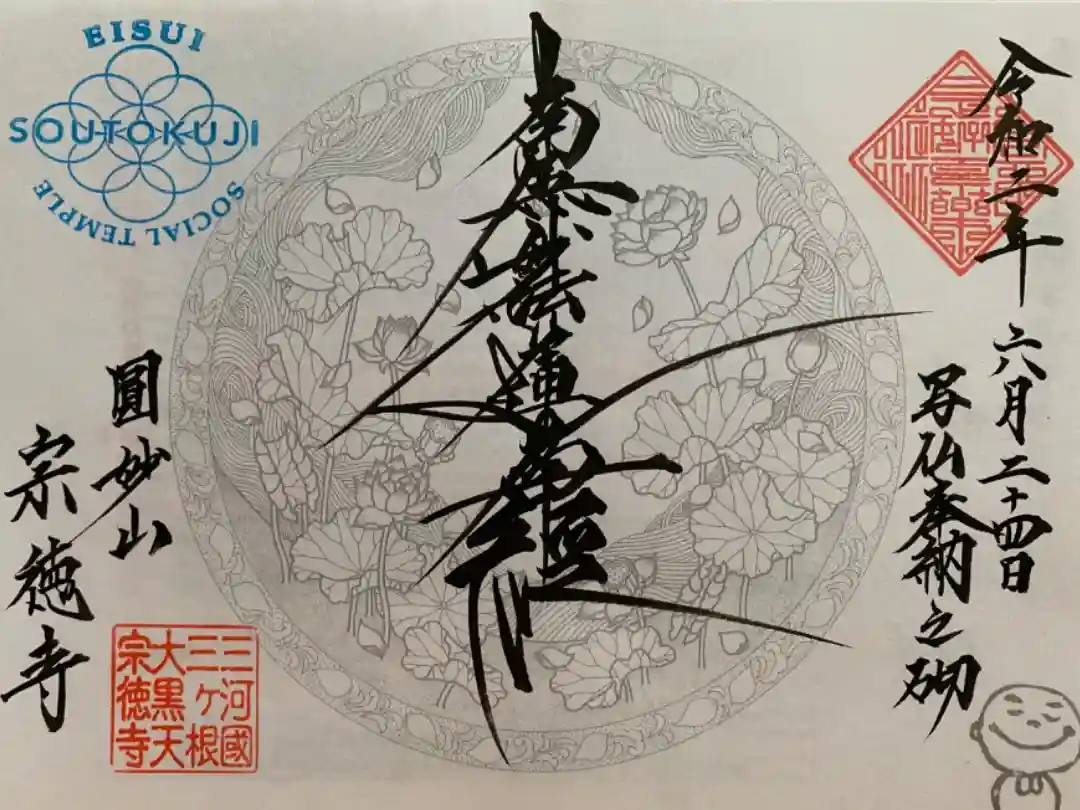 EISUI
SOUTOKUJI
SOCIAL TEMPLE
令和二年六月二十四日
写仏奉納之砌
南無妙法蓮華經
圓妙山
宗徳寺
三河國
三ヶ根
大黒天
宗徳寺